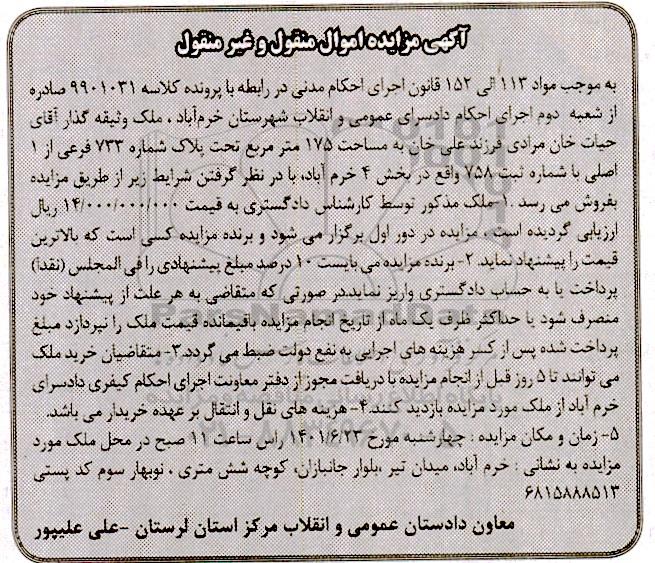 آگهی مزایده اموال منقول و غیر منقول
به موجب مواد ۱۱۳ الی ۱۵۲ قانون اجرای احکام مدنی در رابطه با پرونده کلاسه ۹۹۰۱۰۳۱ صادره
از شعبه دوم اجرای احکام دادسرای عمومی و انقلاب شهرستان خرم‌آباد ، ملک وثیقه گذار آقای
حیات خان مرادی فرزند علی خان به مساحت ۱۷۵ متر مربع تحت پلاک شماره ۷۳۳ فرعی از ۱
اصلی با شماره ثبت ۷۵۸ واقع در بخش ۴ خرم آباد، با در نظر گرفتن شرایط زیر از طریق مزایده
بفروش می رسد .۱-ملک مذکور توسط کارشناس دادگستری به قیمت ۱۴/۰۰۰/۰۰۰/۰۰۰ ریال
ارزیابی گردیده است ، مزایده در دور اول برگزار می شود و برنده مزایده کسی است که بالاترین
قیمت را پیشنهاد نماید. ۲- برنده مزایده می بایست ۱۰ درصد مبلغ پیشنهادی را فی المجلس (نقداً)
پرداخت یا به حساب دادگستری واریز نماید.در صورتی که متقاضی به هر علت از پیشنهاد خود
منصرف شود یا حداکثر ظرف یک ماه از تاریخ انجام مزایده باقیمانده قیمت ملک را نپردازد مبلغ
پرداخت شده پس از کسر هزینه های اجرایی به نفع دولت ضبط می گردد.۳- متقاضیان خرید ملک
می توانند تا ۵ روز قبل از انجام مزایده با دریافت مجوز از دفتر معاونت اجرای احکام کیفری دادسرای
خرم آباد از ملک مورد مزایده بازدید کنند.۴- هزینه های نقل و انتقال بر عهده خریدار می باشد.
۵- زمان و مکان مزایده : چهارشنبه مورخ ۱۴۰۱/۶/۲۳ راس ساعت ۱۱ صبح در محل ملک مورد
مزایده به نشانی : خرم آباد، میدان تیر ،بلوار جانبازان، کوچه شش متری ، نوبهار سوم کد پستی
۶۸۱۵۸۸۸۵۱۳
معاون دادستان عمومی و انقلاب مرکز استان لرستان -علی علیپور
ParsNamadData